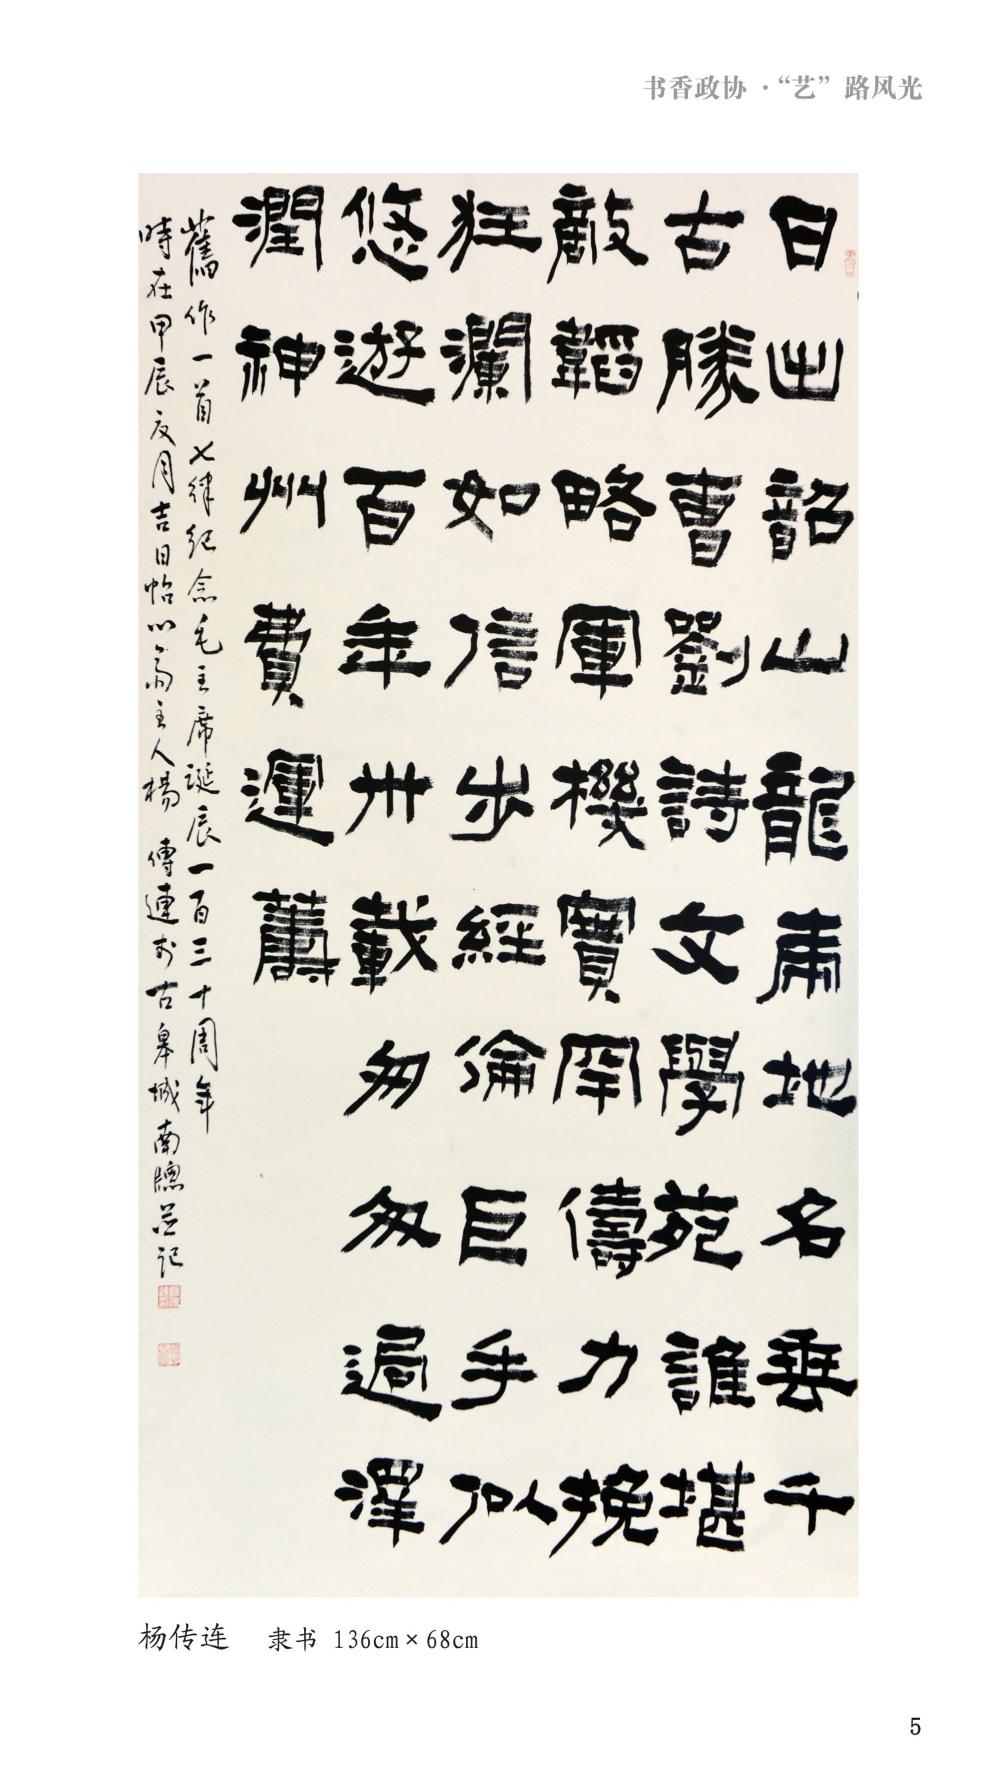 书香政协 ·“艺”路风光
日出韶山龍虎地名垂千
古勝曹劉詩文學苑誰堪
敵韜略軍機實罕儔力挽
狂瀾如信步經倫巨手似
悠遊百年卅載匆匆過澤
潤神州費運籌
舊作一首七律紀念毛主席誕辰一百三十周年
時在甲辰夏月吉日怡心斋主人楊傳連於古皋城南牕並记
杨传连 隶书 136cm×68cm
5